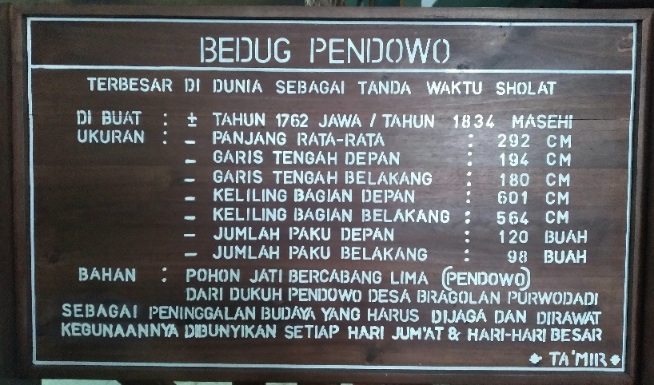 BEDUG PENDOWO
TERBESAR DI DUNIA SEBAGAI TANDA WAKTU SHOLAT
DI BUAT : ± TAHUN 1762 JAWA / TAHUN 1834 MASEHI
UKURAN : – PANJANG RATA-RATA : 292 CM
– GARIS TENGAH DEPAN : 194 CM
– GARIS TENGAH BELAKANG : 180 CM
– KELILING BAGIAN DEPAN : 601 CM
– KELILING BAGIAN BELAKANG : 564 CM
– JUMLAH PAKU DEPAN : 120 BUAH
– JUMLAH PAKU BELAKANG : 98 BUAH
BAHAN : POHON JATI BERCABANG LIMA (PENDOWO)
DARI DUKUH PENDOWO DESA BRAGOLAN PURWODADI
SEBAGAI PENINGGALAN BUDAYA YANG HARUS DIJAGA DAN DIRAWAT
KEGUNAANNYA DIBUNYIKAN SETIAP HARI JUM'AT & HARI-HARI BESAR
◆ TA'MIR ◆